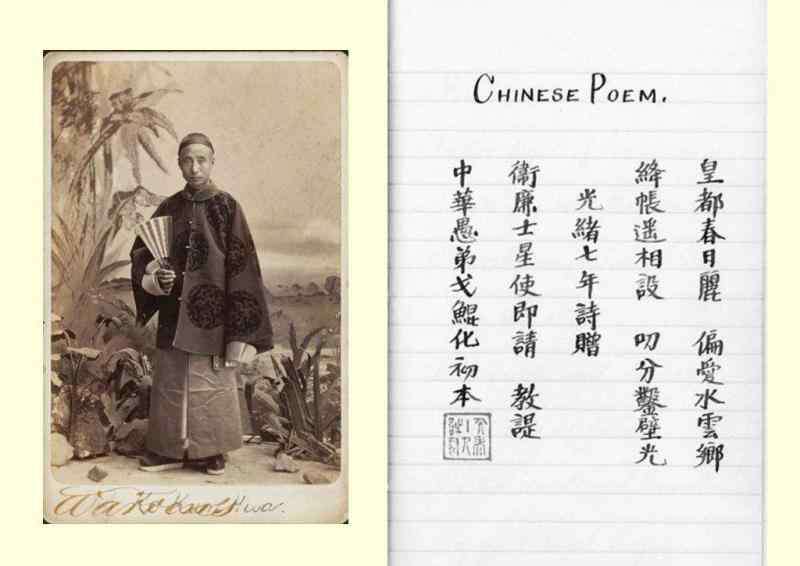 Ko Kun Hwa.
CHINESE POEM.
皇都春日麗 偏愛水雲鄉
絳帳遥相設 叨分鑿壁光
光緒七年詩贈
衛廉士星使即請 教諟
中華愚弟戈鯤化初本